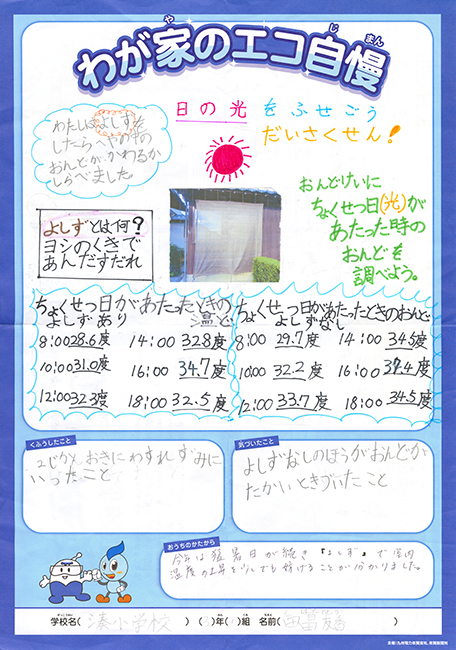 わが家のエコ自慢
や
じまん
日の光をふせごう
だいさくせん!
わたしはよしずを
したらへやの中の
おんどがかわるか
しらべました。
よしずとは何?
ヨシのくきで
あんだすだれ
おんどけいに
ちょくせつ日(光)が
あたった時の
おんどを
調べよう。
ちょくせつ日があたったときの
よしずあり 温ど
8:00 28.6度 14:00 32.8度
10:00 31.0度 16:00 34.7度
12:00 32.3度 18:00 32.5度
ちょくせつ日があたったときのおんど
よしずなし
8:00 29.7度 14:00 34.5度
10:00 32.2度 16:00 37.4度
12:00 33.7度 18:00 34.5度
くふうしたこと
2じかんおきにわすれずみに
いったこと
気づいたこと
よしずなしのほうがおんどが
たかいときづいたこと
おうちのかたから
今年は猛暑日が続き『よしず』で室内
温度の上昇を少しでも妨げることが分かりました。
学校名(湊小学校)(3)年( )組 名前(